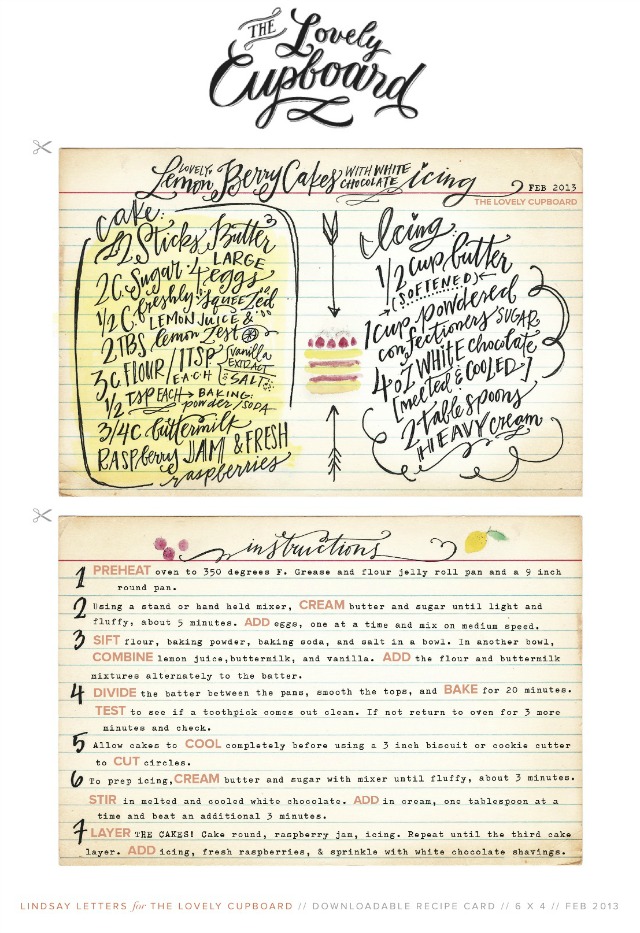 THE Lovely
Cupboard
Lovely Lemon Berry Cakes WITH WHITE CHOCOLATE icing
FEB 2013
THE LOVELY CUPBOARD
cake:
2 Sticks Butter
2C. Sugar 4 LARGE eggs
1/2 C. freshly squeezed
LEMON JUICE &
2 TBS. lemon Zest
3C FLOUR / 1TSP EACH {vanilla EXTRACT SALT}
1/2 TSP EACH → BAKING: powder/SODA
3/4C buttermilk
RASPberry JAM & FRESH
raspberries
Icing:
1/2 cup butter
(SOFTENED)
1 cup powdered
confectioners' SUGAR
4 oz WHITE chocolate
[melted & COOLED]
2 tablespoons
HEAVY cream
instructions
1 PREHEAT oven to 350 degrees F. Grease and flour jelly roll pan and a 9 inch
round pan.
2 Using a stand or hand held mixer, CREAM butter and sugar until light and
fluffy, about 5 minutes. ADD eggs, one at a time and mix on medium speed.
3 SIFT flour, baking powder, baking soda, and salt in a bowl. In another bowl,
COMBINE lemon juice,buttermilk, and vanilla. ADD the flour and buttermilk
mixtures alternately to the batter.
4 DIVIDE the batter between the pans, smooth the tops, and BAKE for 20 minutes.
TEST to see if a toothpick comes out clean. If not return to oven for 3 more
minutes and check.
5 Allow cakes to COOL completely before using a 3 inch biscuit or cookie cutter
to CUT circles.
6 To prep icing,CREAM butter and sugar with mixer until fluffy, about 3 minutes.
STIR in melted and cooled white chocolate. ADD in cream, one tablespoon at a
time and beat an additional 3 minutes.
7 LAYER THE CAKES! Cake round, raspberry jam, icing. Repeat until the third cake
layer. ADD icing, fresh raspberries, & sprinkle with white chocolate shavings.
LINDSAY LETTERS for THE LOVELY CUPBOARD // DOWNLOADABLE RECIPE CARD // 6 X 4 // FEB 2013